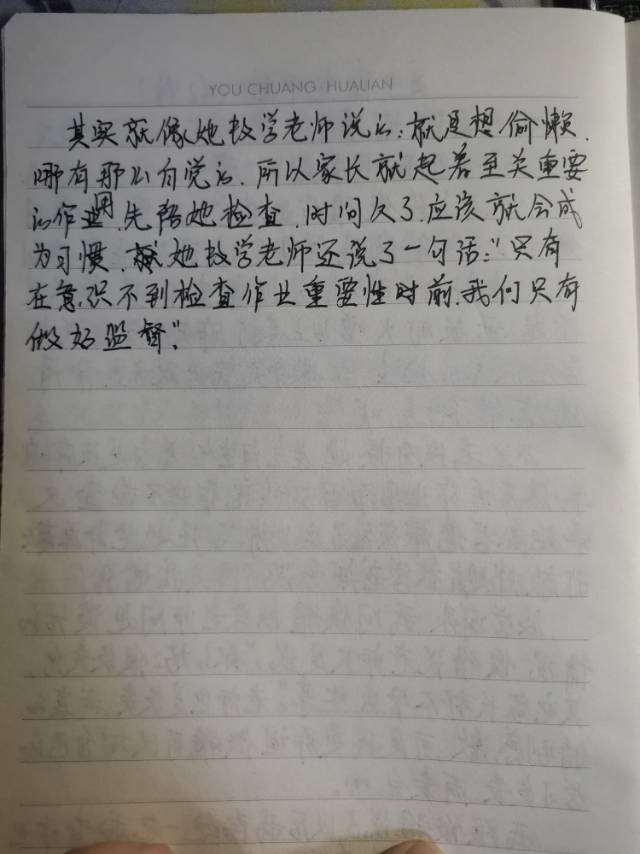 YOU CHUANG HUALIAN
其实就像她数学老师说的:就是想偷懒.
哪有那么自觉的.所以家长就起着至关重要
的作用.先陪她检查.时间久了.应该就会成
为习惯.她数学老师还说了一句话:"只有
在意识不到检查作业重要性时前.我们只有
做好监督."